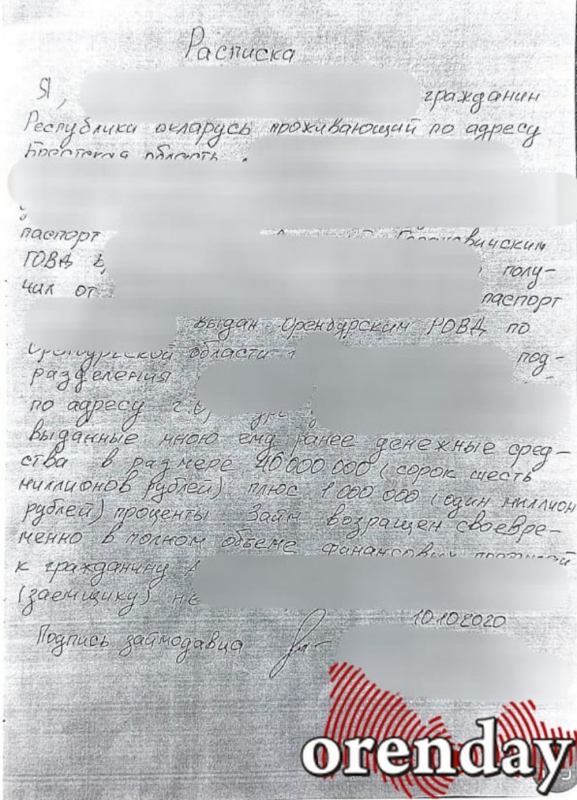 Расписка
Я, гражданин
Республики проживающий по адресу
Брестская область,
паспорт
ГОВД полу-
чил от паспорт
выдан Оренбурским РОВД по
области под-
разделения
по адресу
выданные мною ему ранее денежные сред-
ства в размере (сорок шесть
миллионов рублей) плюс 1 000 000 (один миллион
рублей) проценты Займ возращен своевре-
менно в полном объеме финансовых
к гражданину
(заемщику) не
10.10.2020
Подпись займодавца
orenday